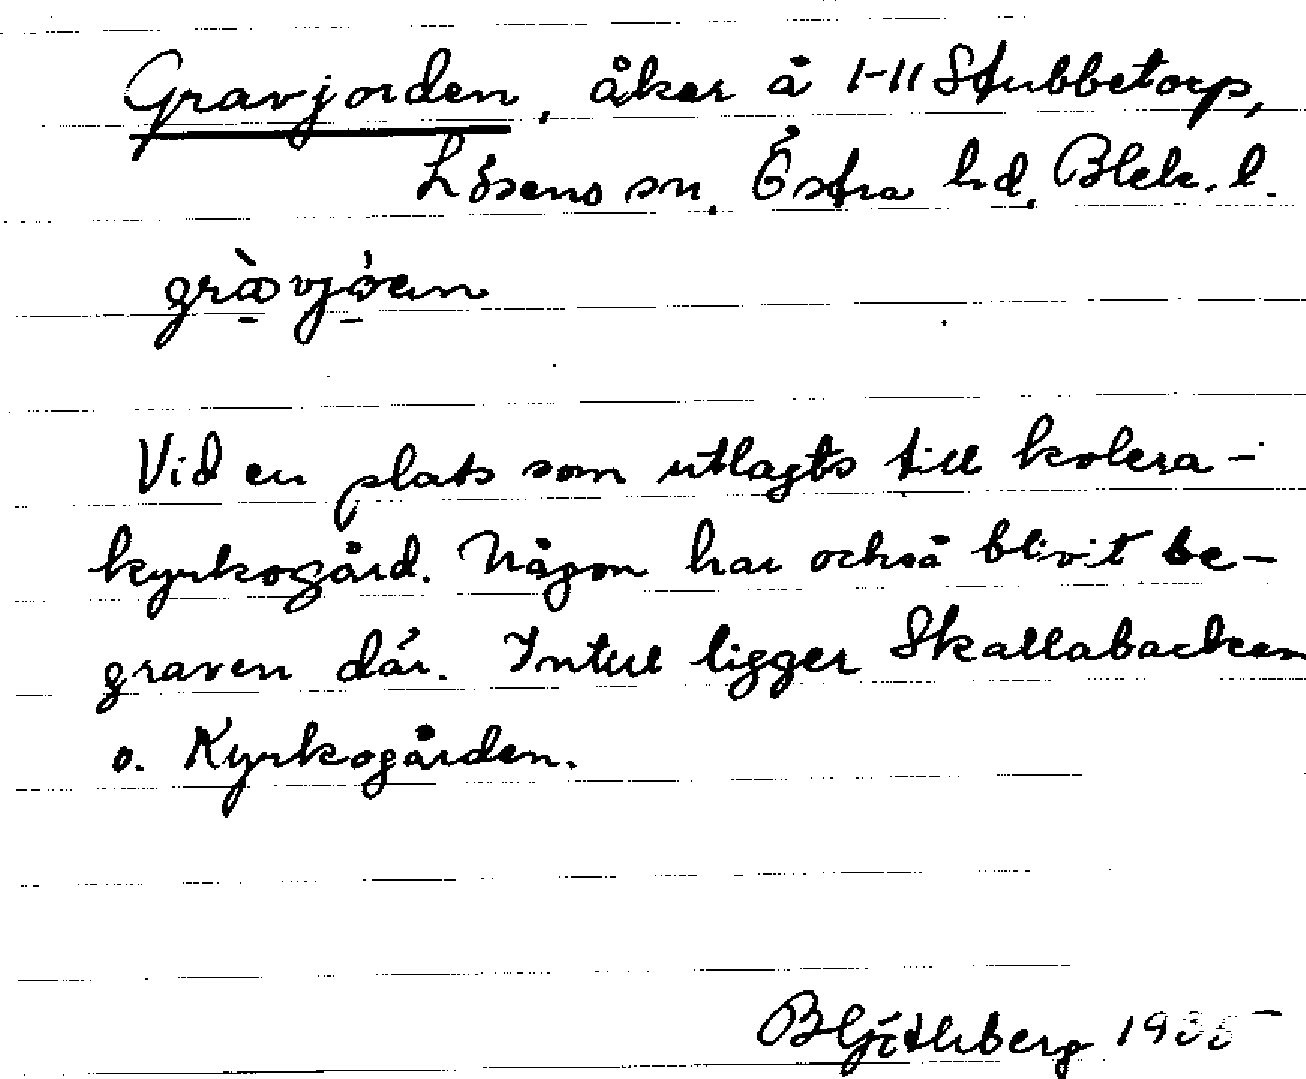 Gravjorden, åker å 1-11 Stubbetorp,
Lösens sn. Östra hd. Blek. l.
Vid en plats som utlagts till kolera-
kyrkogård. Någon har också blivit be-
graven där. Intill ligger Skallabacken
o. Kyrkogården.